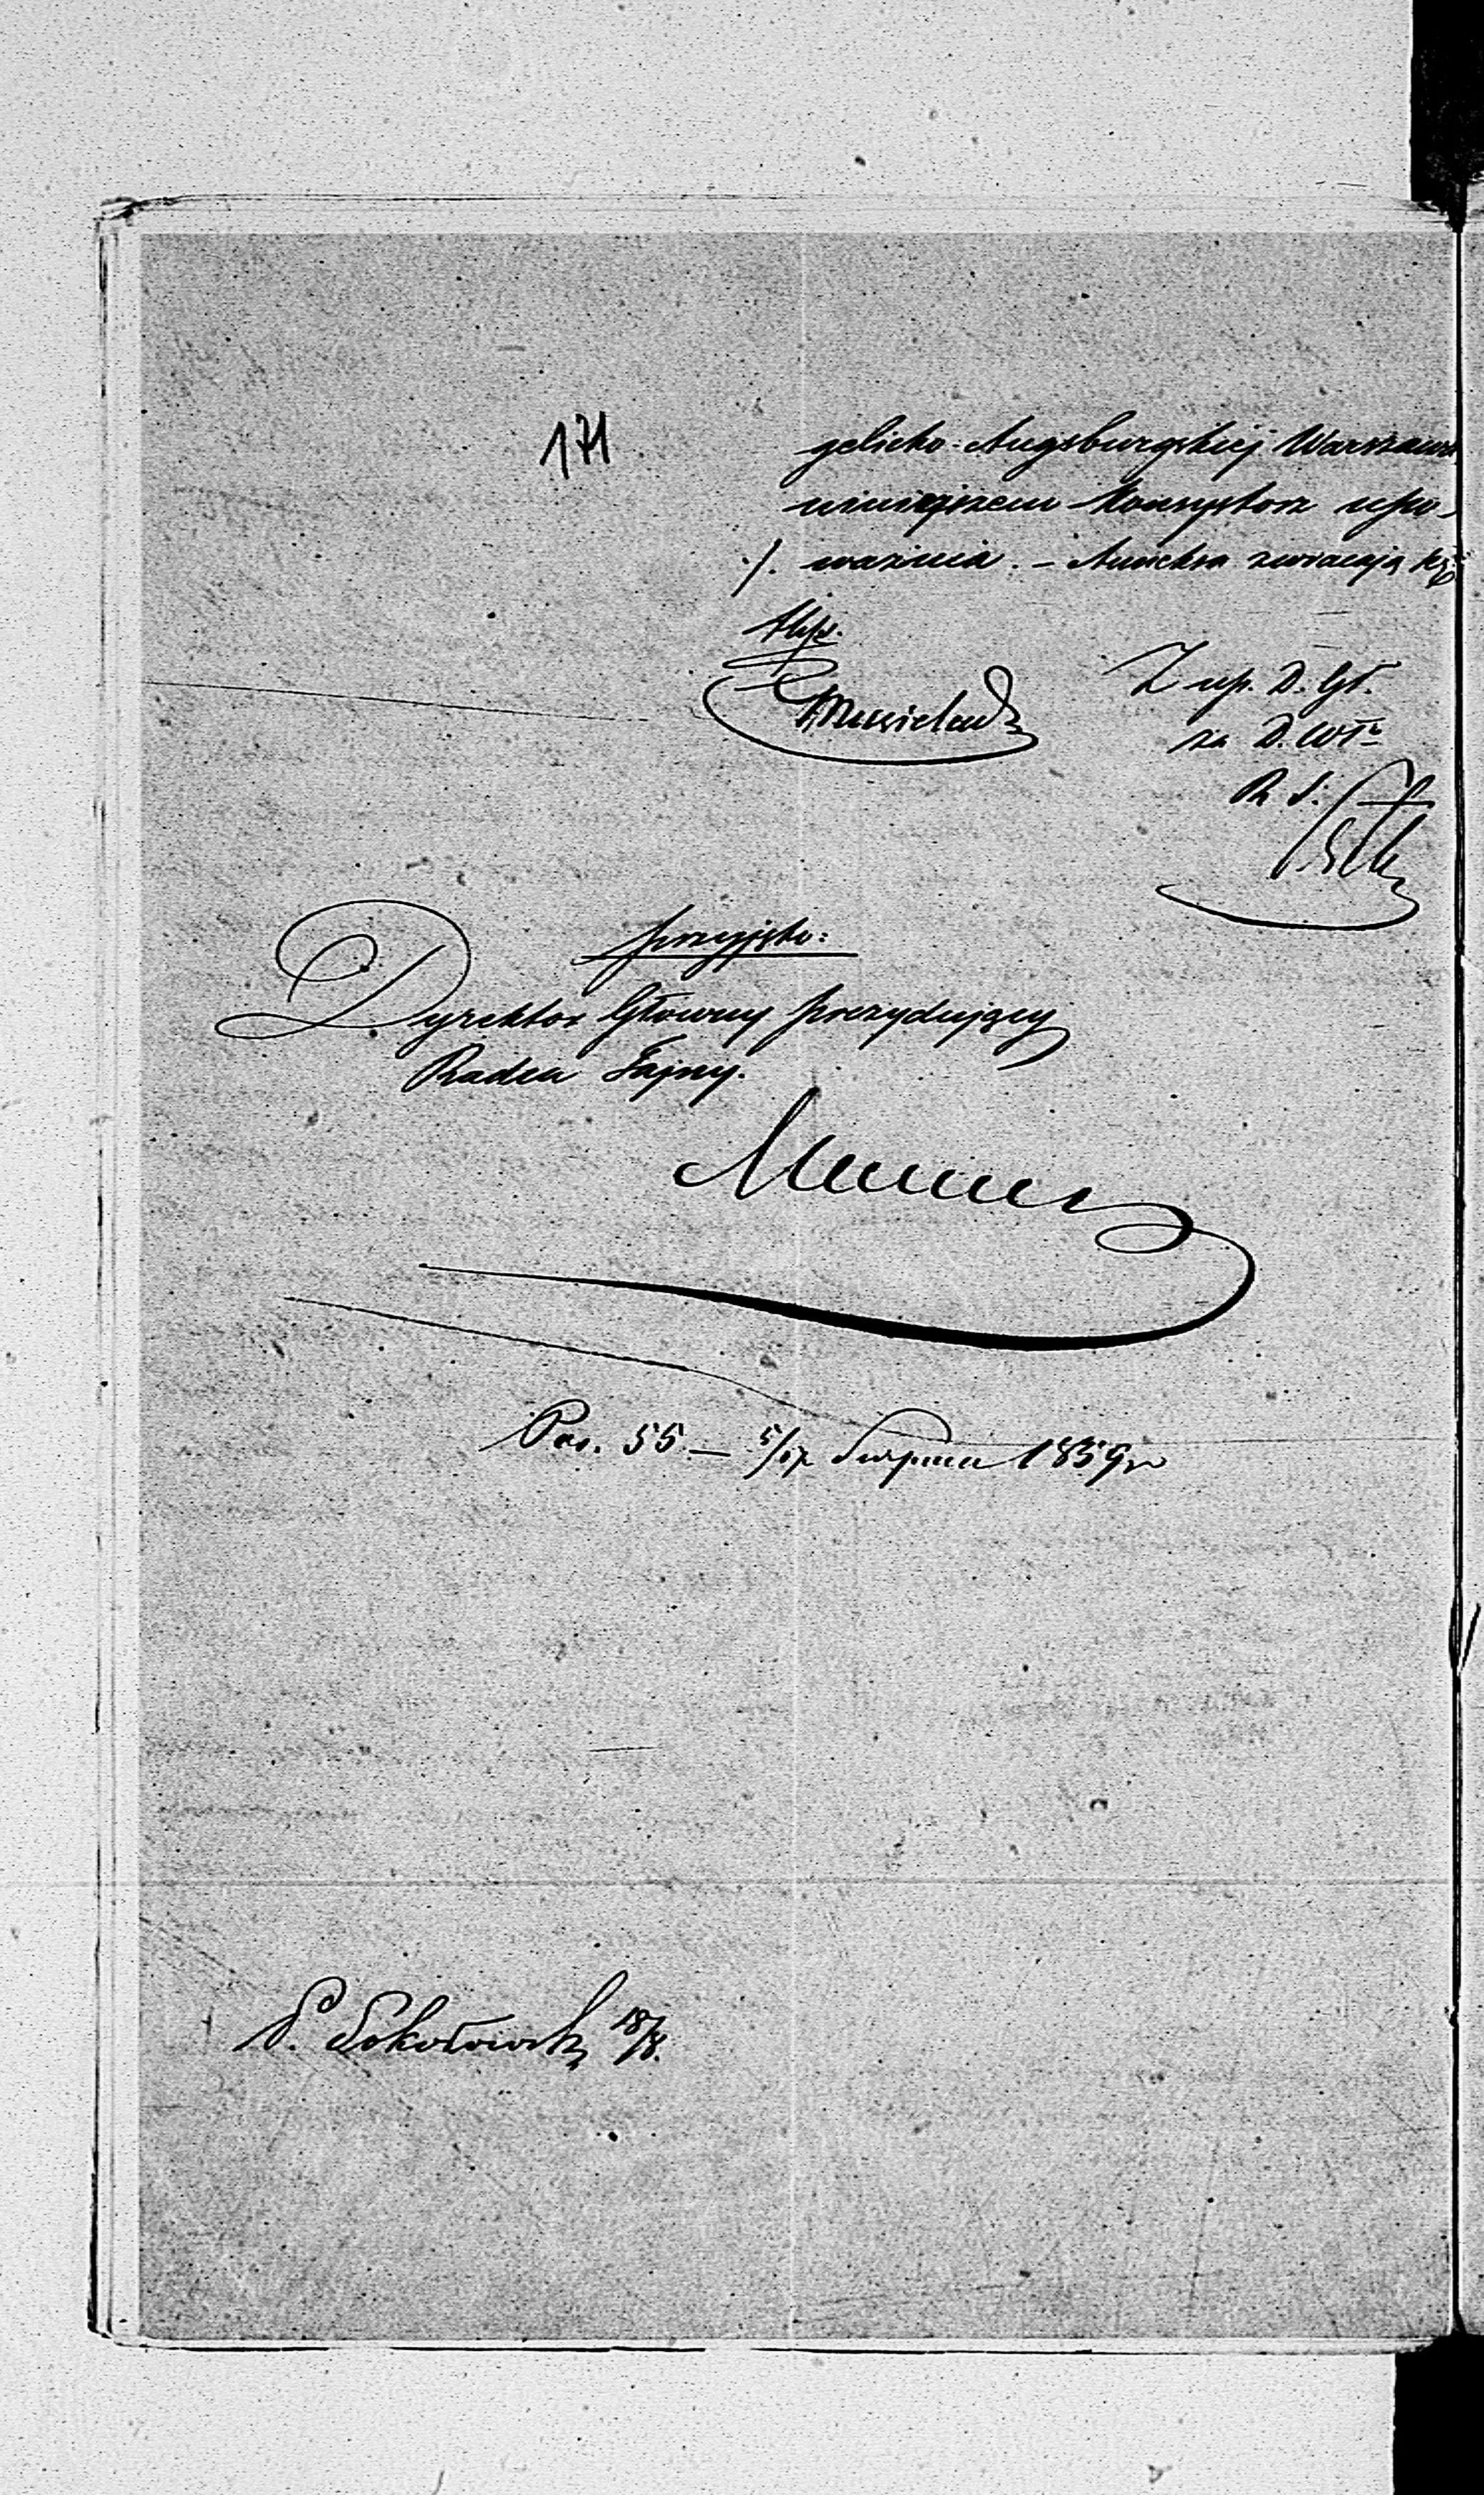 171
gelicko-Augsburgskiej Warszaws
niniejszem Konsystorz upo-
./. ważnia. - Annexa zwracają się
Z up. D. Gł.
za D. Wł.
R. S.
przyjęto:
Dyrektor Główny prezydujący
Radca Tajny.
Pos. 55 — 5/17 Sierpnia 1859 r
P. Sokołowski 18/8.